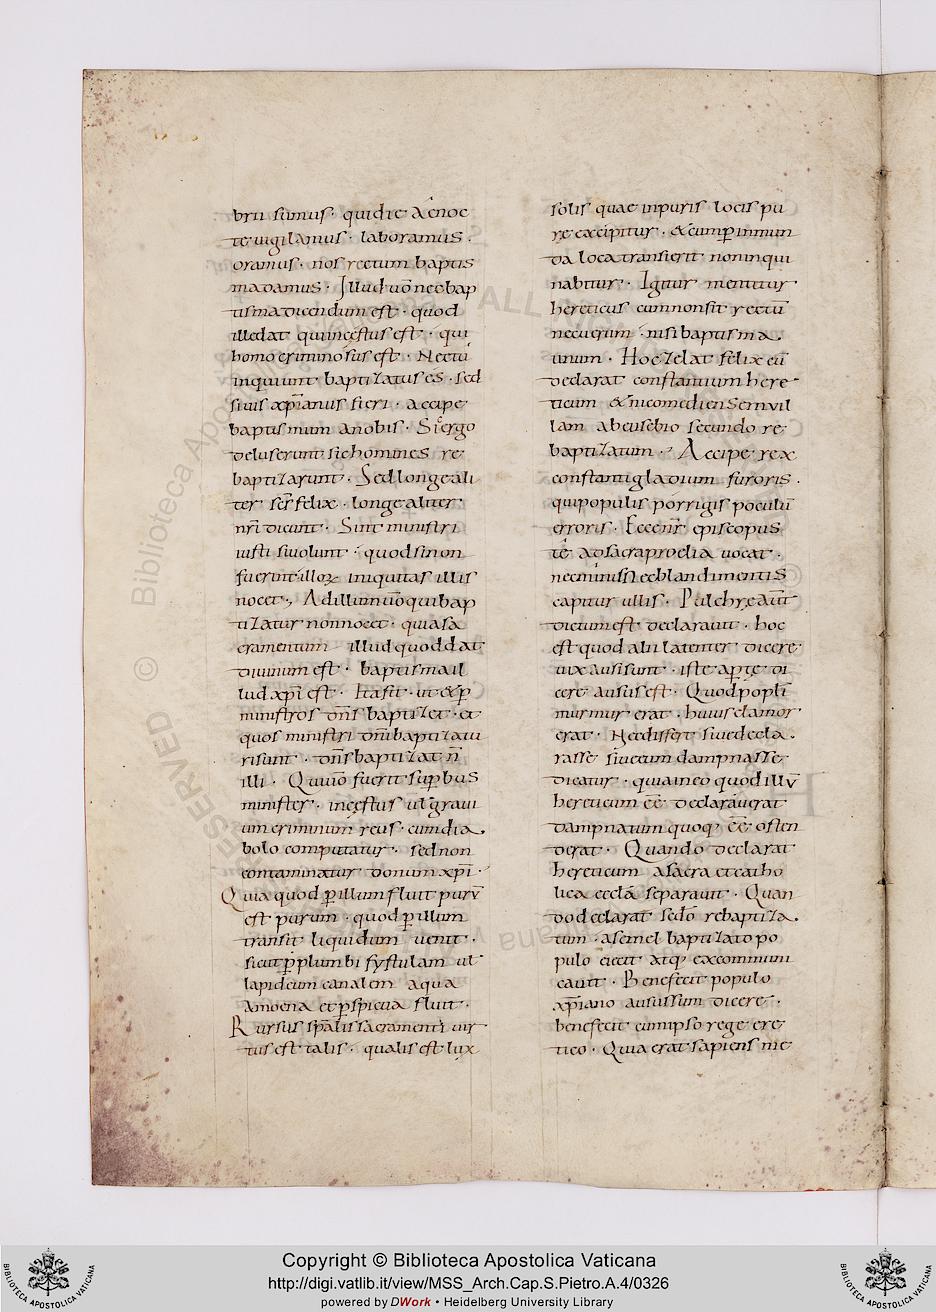 brii sumus · qui die ac noc
te uigilamus · laboramus ·
oramus · nos rectum baptis
ma damus · Illud uo nec bap
tisma dicendum est · quod
ille dat qui incęstus est · qui
homo criminosus est · Nec tu
inquiunt baptizatus es · sed
si uis xpianus fieri · accipe
baptismum a nobis · Si ergo
deluserunt sic homines re
baptizarunt · Sed longe ali
ter ser felix · longe aliter
nri dicunt · Sint ministri
iusti si uolunt · quod si non
fuerint illoꝝ iniquitas illis
nocet · Ad illum uo qui bap
tizatur non nocet · quia sa
cramentum illud quod dat
diuinum est · baptisma il
lud xpi est · Ita fit · ut et ꝑ
ministros dns baptizet · et
quos ministri dni baptizatu
ri sunt · dns baptizat n
illi · Qui uo fuerit supbus
minister · incęstus ul graui
um criminum reus · cum dia
bolo computatur · sed non
contaminatur donum xpi ·
Quia quod ꝑ illum fluit purū
est purum · quod ꝑ illum
transit liquidum uenit ·
sicut ꝑ plumbi fystulam ul
lapideum canalem aqua
amoena et ꝑspicua fluit ·
Rursus spalis sacramenti uir
tus est talis · qualis est lux
solis quae in puris locis pu
re excipitur · & cum ꝑ inmun
da loca transierit non inqui
nabitur · Igitur mentitur
hereticus cum non sit rectū
nec uerum · nisi baptisma
unum · Hoc zelat felix eū
declarat constantium here
ticum & nicomediensem uil
lam ab eusebio secundo re
baptizatum · Accipe rex
constanti gladium furoris ·
qui populis porrigis poculū
erroris · Ecce nr episcopus
te ad sacra proelia uocat ·
nec minis nec blandimentis
capitur ullis · Pulchre aut
dictum est declarauit · hoc
est quod alii latenter dicere
uix ausi sunt · iste apte di
cere ausus est · Quod popli
murmur erat · huius clamor
erat · Nec differt siue decla
rasse siue eum dampnasse
dicatur · quia in eo quod illū
hereticum ee declarauerat
dampnatum quoq ee osten
derat · Quando declarat
hereticum a sacra et catho
lica eccla separauit · Quan
do declarat sedo rebaptiza
tum · a semel baptizato po
pulo eiecit atq excommuni
cauit · Benefecit populo
xpiano ausus sum dicere ·
benefecit cum ipso rege ere
tico · Quia erat sapiens me
© Biblioteca Apostolica Vaticana
Copyright © Biblioteca Apostolica Vaticana
http://digi.vatlib.it/view/MSS_Arch.Cap.S.Pietro.A.4/0326
powered by DWork • Heidelberg University Library
BIBLIOTECA APOSTOLICA VATICANA
BIBLIOTECA APOSTOLICA VATICANA